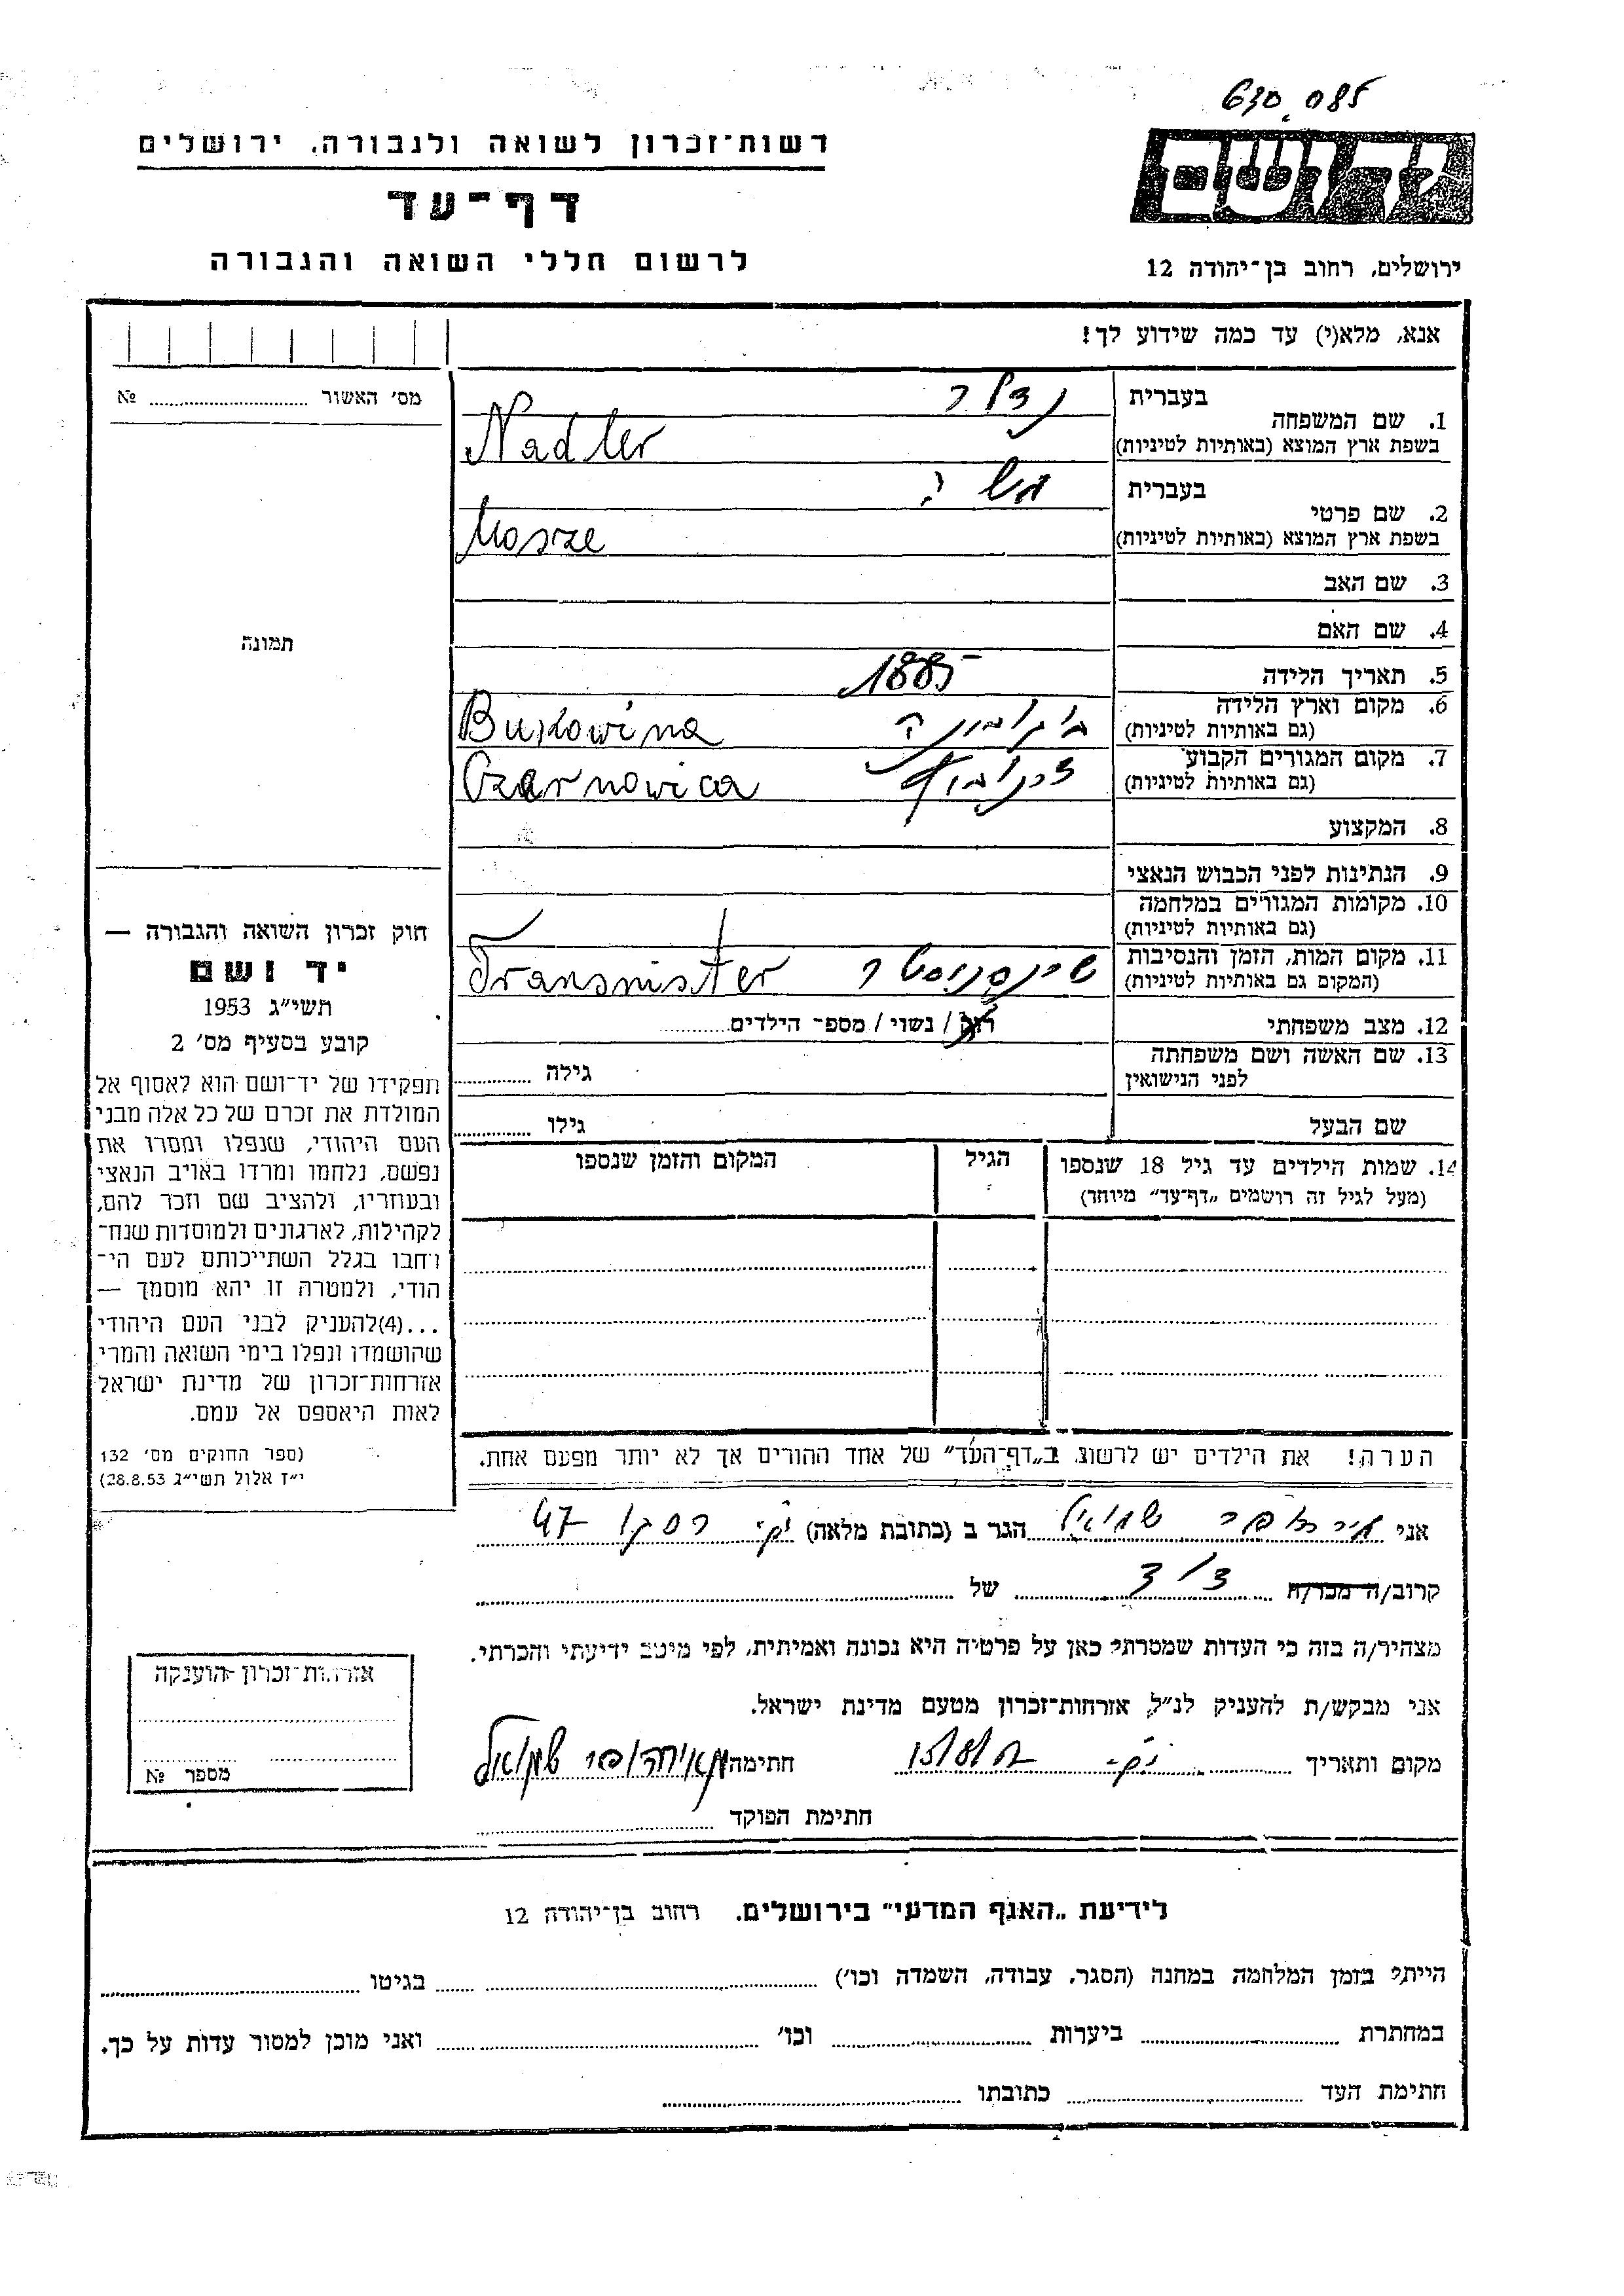 630 085
רשות־זכרון לשואה ולגבורה. ירושלים
ידושם
דף־עד
לרשום חללי השואה והגבורה
ירושלים, רחוב בן־יהודה 12
אנא, מלא(י) עד כמה שידוע לך!
מס׳ האשור ........ №
1. שם המשפחה
בעברית נדלר
בשפת ארץ המוצא (באותיות לטיניות) Nadler
2. שם פרטי
בעברית משה
בשפת ארץ המוצא (באותיות לטיניות) Mosze
3. שם האב
4. שם האם
5. תאריך הלידה 1885
6. מקום וארץ הלידה
(גם באותיות לטיניות) בוקובינה Bukowina
7. מקום המגורים הקבוע
(גם באותיות לטיניות) Czarnowica
8. המקצוע
9. הנתינות לפני הכבוש הנאצי
10. מקומות המגורים במלחמה
(גם באותיות לטיניות)
11. מקום המות, הזמן והנסיבות
(המקום גם באותיות לטיניות) Transnister
12. מצב משפחתי רוק / נשוי / מספ־ הילדים........
13. שם האשה ושם משפחתה
לפני הנישואין גילה ........
שם הבעל גילו ........
14. שמות הילדים עד גיל 18 שנספו
(מעל לגיל זה רושמים „דף־עד״ מיוחד)
הגיל
המקום והזמן שנספו
תמונה
חוק זכרון השואה והגבורה —
יד ושם
תשי״ג 1953
קובע בסעיף מס׳ 2
תפקידו של יד־ושם הוא לאסוף אל
המולדת את זכרם של כל אלה מבני
העם היהודי, שנפלו ומסרו את
נפשם, נלחמו ומרדו באויב הנאצי
ובעוזריו, ולהציב שם וזכר להם,
לקהילות, לארגונים ולמוסדות שנח־
רחבו בגלל השתייכותם לעם הי־
הודי, ולמטרה זו יהא מוסמך —
...(4)להעניק לבני העם היהודי
שהושמדו ונפלו בימי השואה והמרי
אזרחות־זכרון של מדינת ישראל
לאות היאספם אל עמם.
(ספר החוקים מס׳ 132
י״ז אלול תשי״ג 28.8.53)
הערה! את הילדים יש לרשום ב„דף־העד״ של אחד ההורים אך לא יותר מפעם אחת.
אני שמואל הגר ב (כתובת מלאה) 47
קרוב/ה מכר/ה דוד של
מצהיר/ה בזה כי העדות שמסרתי כאן על פרטיה היא נכונה ואמיתית, לפי מיטב ידיעתי והכרתי.
אני מבקש/ת להעניק לנ״ל אזרחות־זכרון מטעם מדינת ישראל.
מקום ותאריך חתימה שמואל
חתימת הפוקד
אזרחות־זכרון הוענקה
מספר №
לידיעת „האגף המדעי״ בירושלים. רחוב בן־יהודה 12
הייתי בזמן המלחמה במחנה (הסגר, עבודה, השמדה וכו׳) ........ בגיטו ........
במחתרת ........ ביערות ........ וכו׳ ........ ואני מוכן למסור עדות על כך.
חתימת העד ........ כתובתו ........